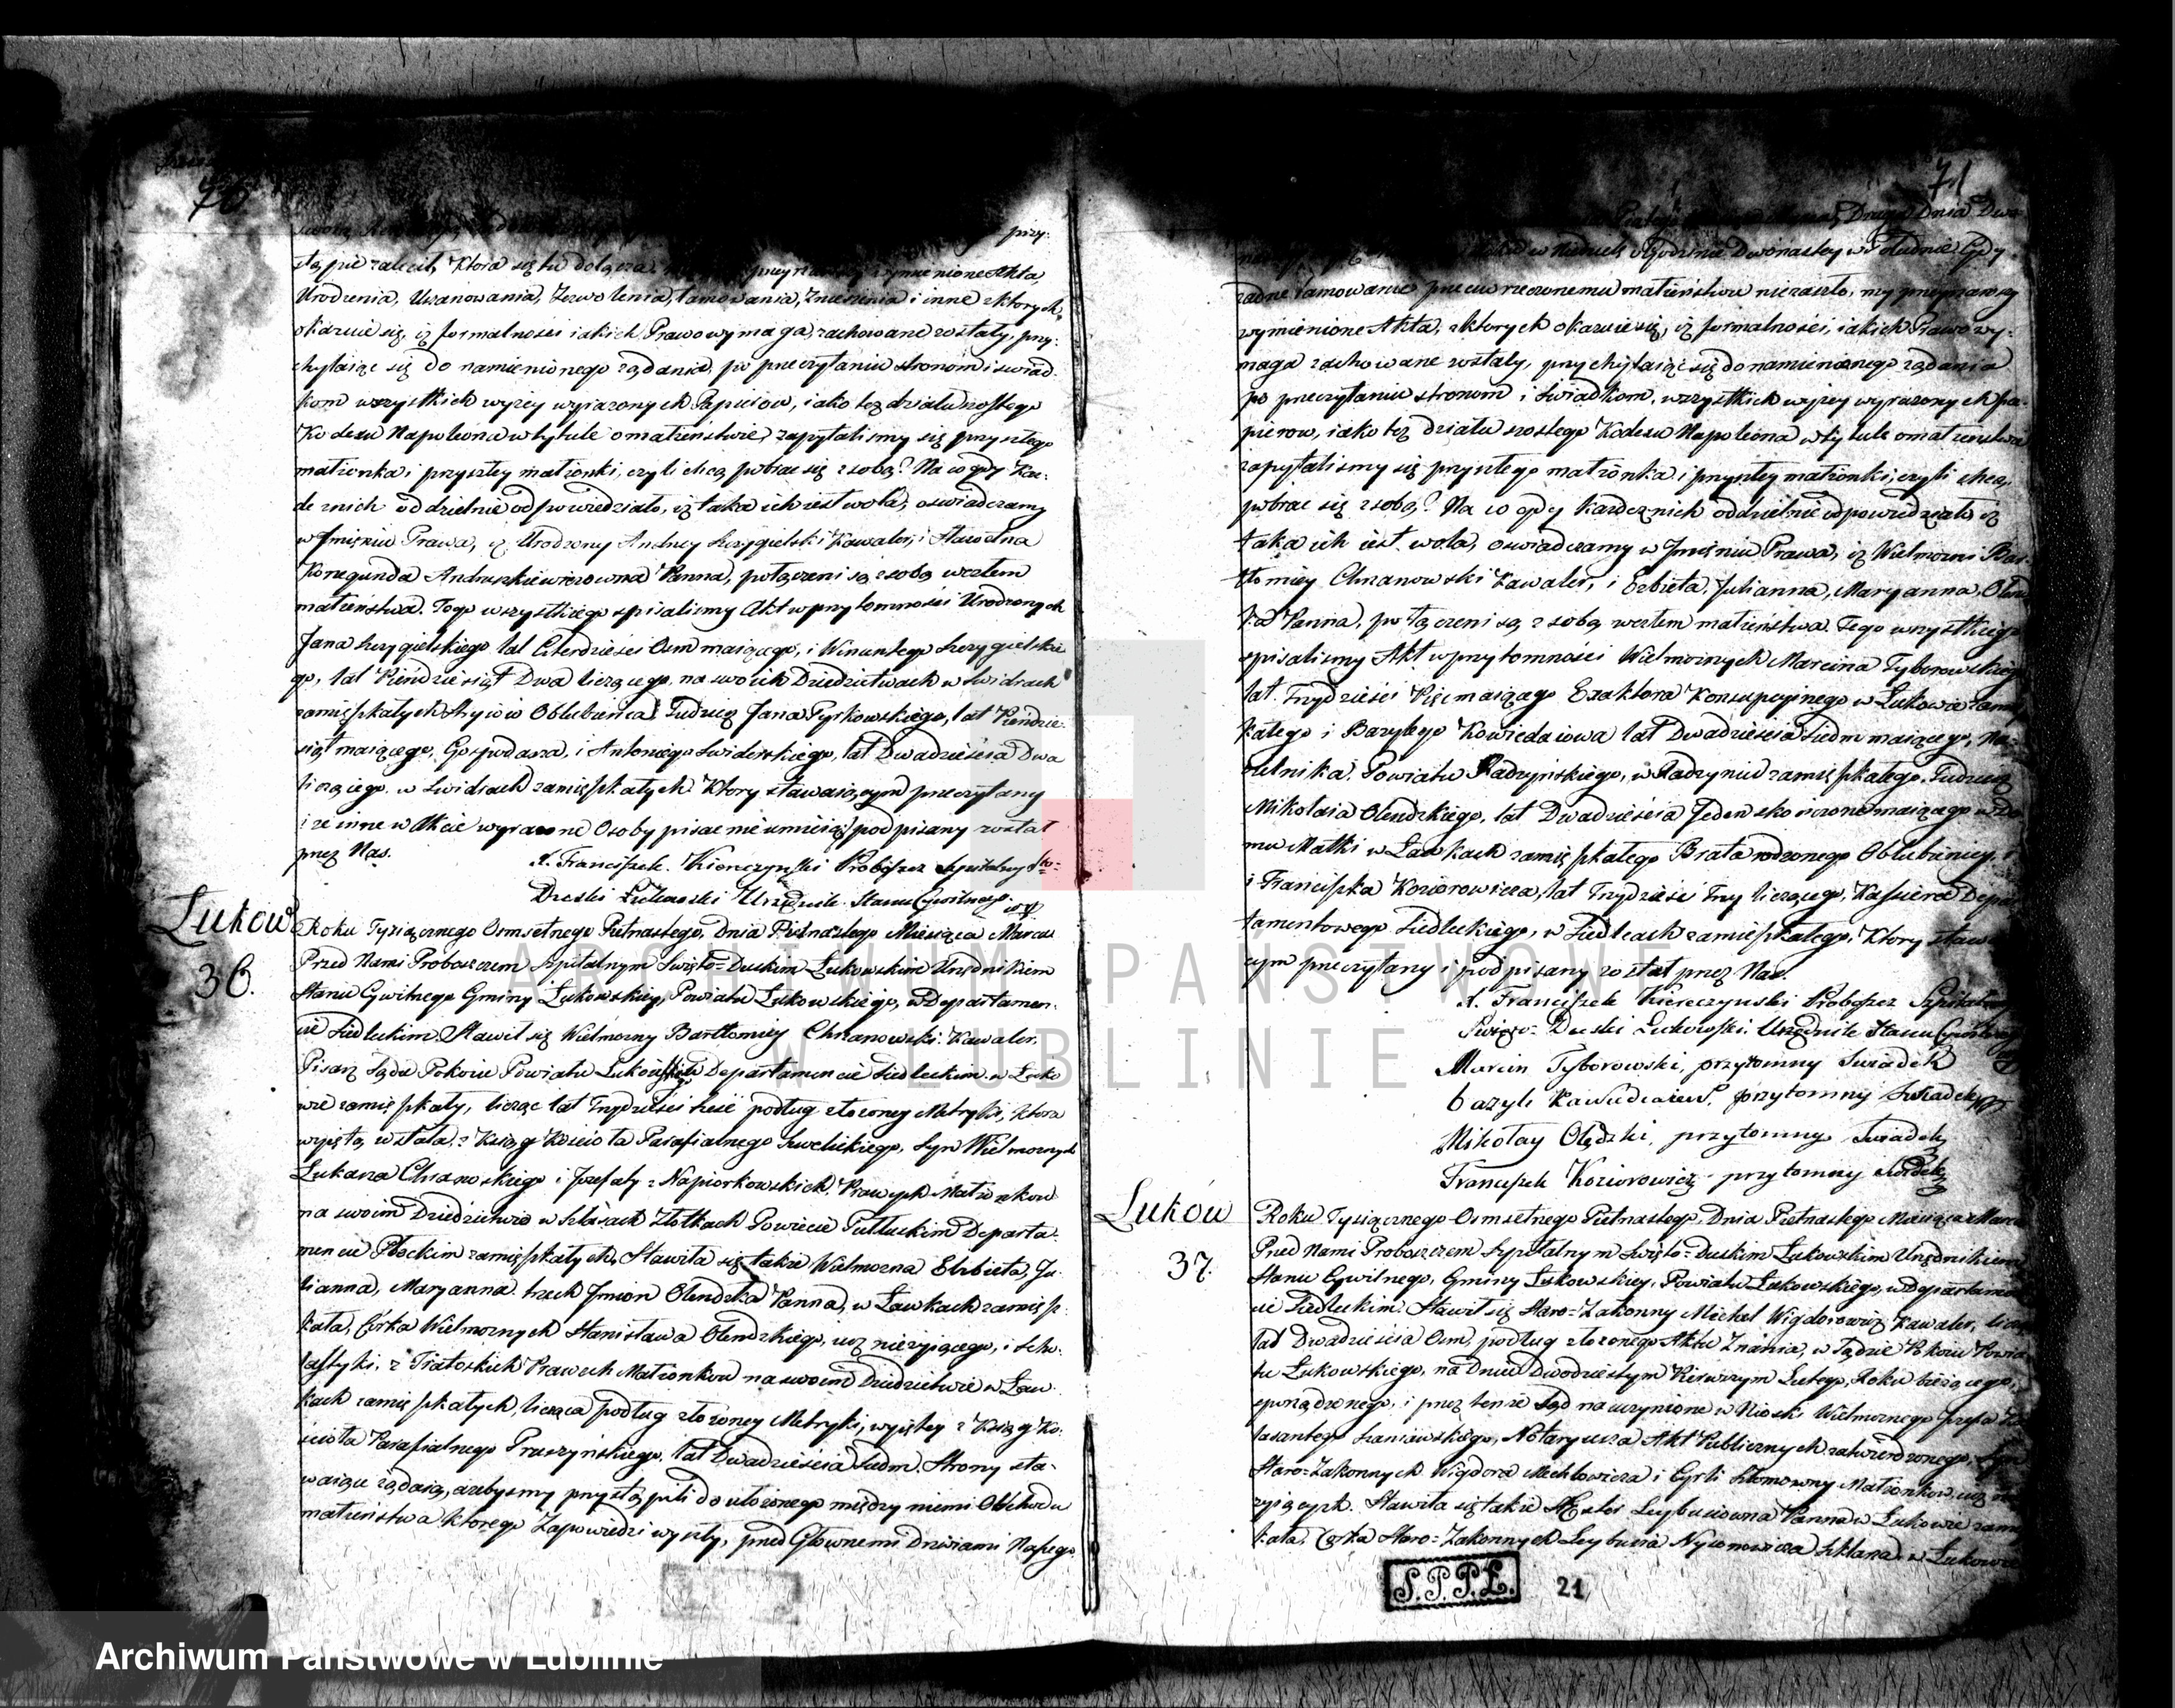 70
przy-
stąpić zalecił, która się tu dołącza, przeyrzawszy wymienione Akta,
Urodzenia, Uszanowania, Zezwolenia, Tamowania, Zniesienia i inne z których
okazuie się, iż formalności iakich Prawo wymaga, zachowane zostały, przy-
chylaiąc się do namienionego żądania, po przeczytaniu stronom i świad-
kom wszystkich wyżey wyrażonych Papierow, iako też działu szostego
Kodexu Napoleona w tytule o małżeństwie, zapytaliśmy się przyszłego
małżonka i przyszłey małżonki, czyli chcą pobrać się z sobą? Na co gdy Każ-
de z nich oddzielnie odpowiedziało, iż taka ich iest wola, oświadczamy
w Jmieniu Prawa, iż Urodzony Andrzey Kawaler, i Sławetna
Konegunda Andruszkiewiczowna Panna, połączeni są z sobą węzłem
małżeństwa. Tego wszystkiego spisaliśmy Akt w przytomności Urodzonych
Jana lat Czterdzieści Osm maiącego, i Wincentego
go, lat Pięndziesiąt Dwa liczącego, na swoich Dziedzictwach w Swidrach
zamięszkałych Stryiow Oblubieńca, Tudzież Jana Pyrkowskiego, lat Pięndzie-
siąt maiącego, Gospodarza, i Antoniego Swiderskiego, lat Dwadzieścia Dwa
liczącego, w Swidrach zamięszkałych. Ktory stawaiącym przeczytany
i że inne w Akcie wyrażone Osoby pisać nie umieią, podpisany został
przez Nas.
X. Franciszek Kierczyński Proboszcz Szpitalny Sto-
Duski Łukowski Urzędnik Stanu Cywilnego
Łukow
36.
Roku Tysiącznego Osmsetnego Piętnastego, Dnia Piętnastego Miesiąca Marca
Przed Nami Proboszczem Szpitalnym Swięto-Duskim Łukowskim Urzędnikiem
Stanu Cywilnego Gminy Łukowskiey, Powiatu Łukowskiego, w Departamen-
cie Siedleckim. Stawił się Wielmożny Bartłomiey Chrzanowski Kawaler,
Pisarz Sądu Pokoiu Powiatu Łukowskiego w Departamencie Siedleckim w Łuko-
wie zamięszkały, licząc lat Trzydzieści sześć podług złożoney Metryki, ktora
wyięta została z Xiąg Kościoła Parafialnego Syn Wielmożnych
Łukasza Chrzanowskiego i Jozefaty z Napiorkowskich, Prawych Małżonkow
na swoim Dziedzictwie w Złotkach Powiecie Pułtuskim Departa-
mencie Płockim zamięszkałych, Stawiła się także Wielmożna Elżbieta, Ju-
lianna, Maryanna trzech Jmion Olendzka Panna, w Ławkach zamięsz-
kała, Corka Wielmożnych Stanisława Olendzkiego, iuż nieżyiącego, i Scho-
lastyki z Prawych Małżonkow na swoim Dziedzictwie w Ław-
kach zamięszkałych, licząca podług złożoney Metryki, wyiętey z Xiąg Ko-
ścioła Parafialnego Tuszyńskiego, lat Dwadzieścia Siedm. Strony sta-
waiące żądaią, ażebyśmy przystąpili do ułożonego między niemi Obchodu
małżeństwa ktorego Zapowiedzi wyszły, przed Głownemi Drzwiami Naszego
71
Druga Dnia Dwu-
w Niedzielę o Godzinie Dwunastey w Południe Gdy
żadne tamowanie przeciw rzeczonemu małżeństwu nie zaszło, my przeyrzawszy
wymienione Akta, z ktorych okazuie się, iż formalności, iakich Prawo wy-
maga zachowane zostały, przychylaiąc się do namienionego żądania
po przeczytaniu stronom i świadkom, wszystkich wyżey wyrażonych pa-
pierow, iako też działu szostego Kodexu Napoleona w tytule o małżeństwie
zapytaliśmy się przyszłego małżonka i przyszłey małżonki, czyli chcą
pobrać się z sobą? Na co gdy Każde z nich oddzielnie odpowiedziało iż
taka ich iest wola, oświadczamy w Jmieniu Prawa, iż Wielmożni Bar-
tłomiey Chrzanowski Kawaler, i Elżbieta, Julianna, Maryanna, Olendz-
ka Panna, połączeni są z sobą węzłem małżeństwa. Tego wszystkiego
spisaliśmy Akt w przytomności Wielmożnych Marcina Tyborowskiego
lat Trzydzieści Pięć maiącego Exaktora Konsumpcyinego w Łukowie zamięsz-
kałego i Bazylego lat Dwadzieścia Siedm maiącego, Na-
czelnika Powiatu Radzyńskiego, w Radzyniu zamięszkałego, Tudzież
Mikołaia Olendzkiego, lat Dwadzieścia Jeden skończone maiącego w Do-
mu Matki w Ławkach zamięszkałego Brata rodzonego Oblubienicy,
i Franciszka Koziorowicza, lat Trzydzieści Trzy liczącego, Kassiera Depar-
tamentowego Siedleckiego, w Siedlcach zamięszkałego, Ktory stawa-
cym przeczytany i podpisany został przez Nas.
X. Franciszek Kierczyński Proboszcz Szpitalny
Swięto-Duski Łukowski Urzędnik Stanu Cywilnego
Marcin Tyborowski, przytomny Swiadek
Bazyli przytomny Swiadek
Mikołay Olędzki, przytomny Swiadek
Franciszek Koziorowicz przytomny Swiadek
Łuków
37.
Roku Tysiącznego Osmsetnego Piętnastego, Dnia Piętnastego Miesiąca Marca
Przed Nami Proboszczem Szpitalnym Swięto-Duskim Łukowskim Urzędnikiem
Stanu Cywilnego, Gminy Łukowskiey, Powiatu Łukowskiego, w Departamen-
cie Siedleckim. Stawił się Staro-Zakonny Michel Wigdorowicz Kawaler, licząc
lat Dwadzieścia Osm, podług złożonego Aktu Znania, w Sądzie Pokoiu Powia-
tu Łukowskiego, na Dniu Dwudziestym Pierwszym Lutego, Roku bieżącego,
sporządzonego, i przez tenże Sąd na uczynione Wnioski Wielmożnego Jozefa
Notaryusza Akt Publicznych zatwierdzonego, Syn
Staro-Zakonnych Wigdora Mechlowicza i Cyrli Szlomowny Małżonkow iuż nie
żyiących. Stawiła się także Leybusiowna Panna w Łukowie zamięsz-
kała, Corka Staro-Zakonnych Leybusia Szklarza w Łukowie
S.P.P.Ł.
21
ARCHIWUM PAŃSTWOWE
W LUBLINIE
Archiwum Państwowe w Lublinie